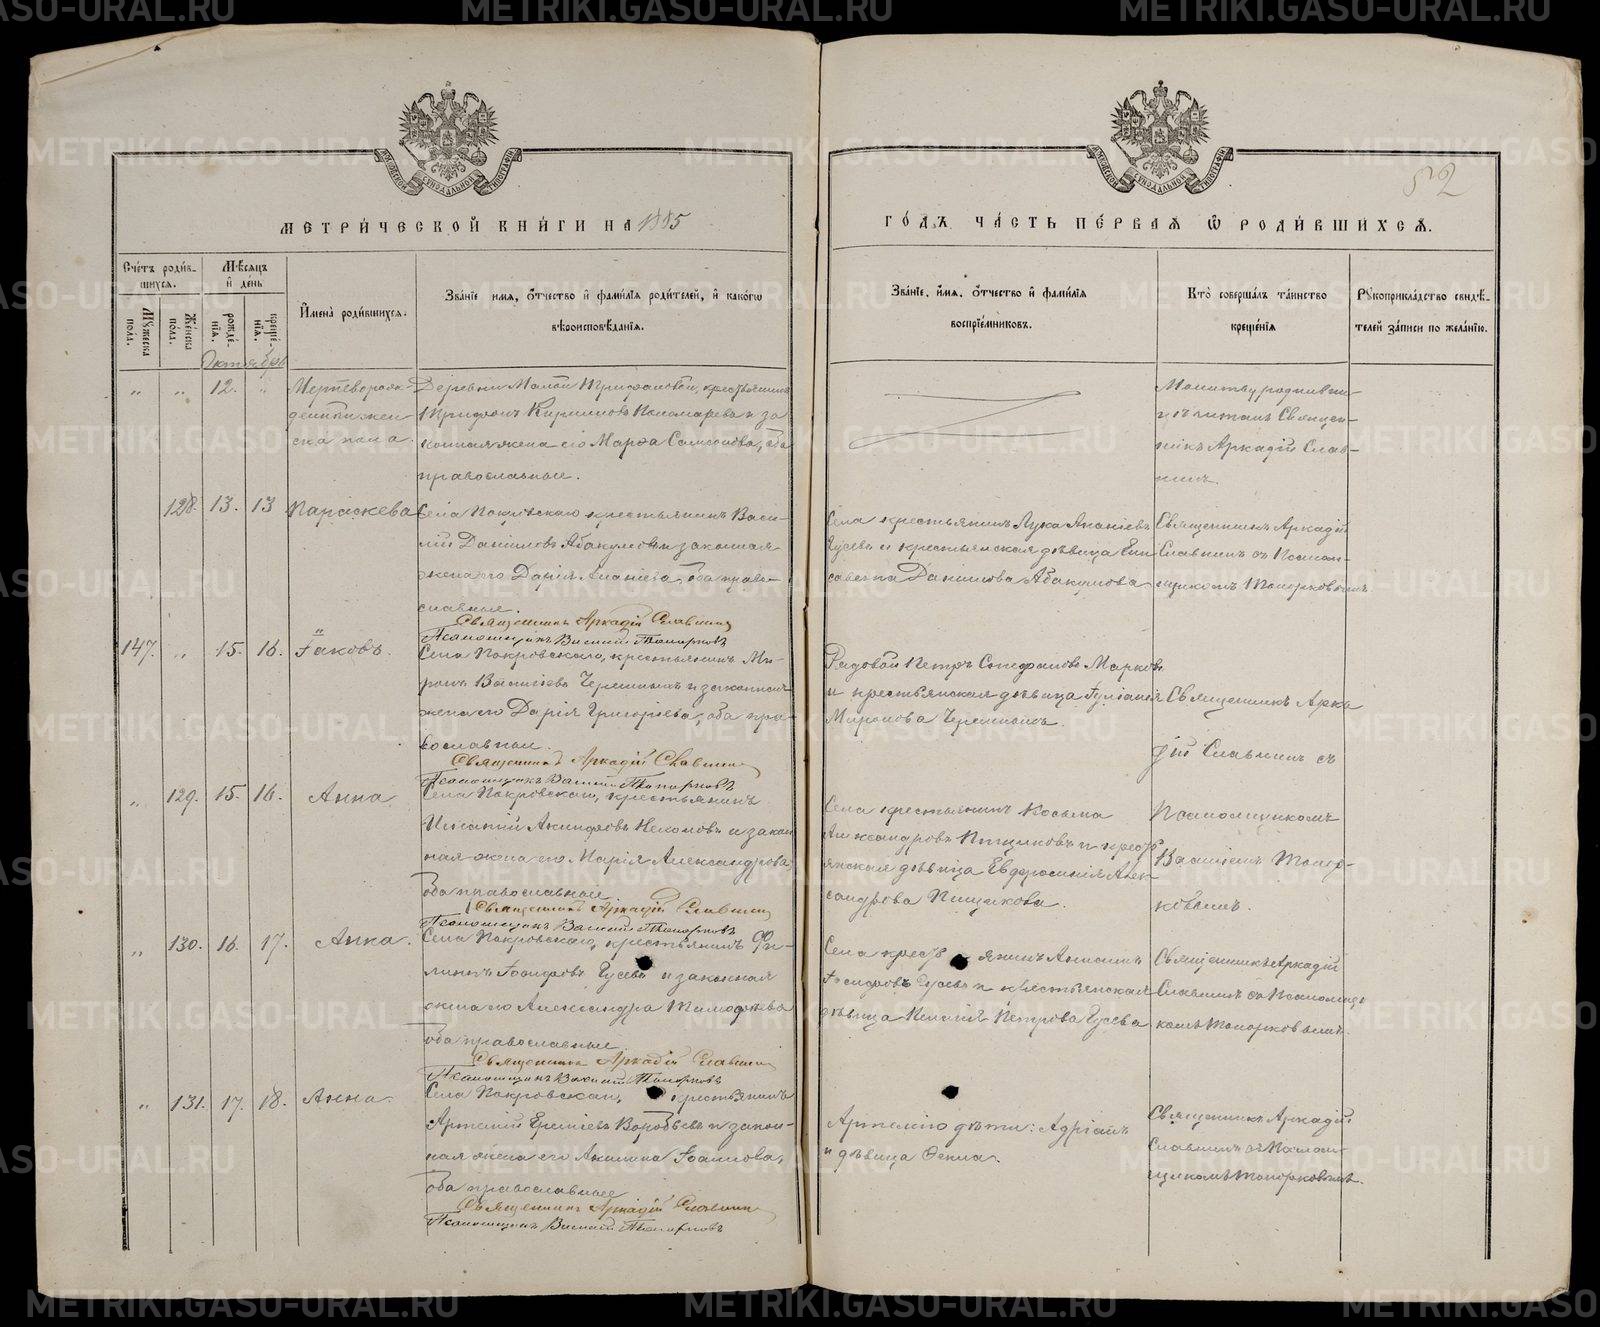 МЕТРИ́ЧЕСКОЙ КНИ́ГИ НА 1885
ГО́ДЪ ЧА́СТЬ ПЕ́РВАЯ Ѿ РОДИ́ВШИХСЯ.
52
Сче́тъ роди́в-
шихся.
Мѣ́сяцъ
и̂ де́нь
Мꙋ́жеска по́ла.
Же́нска по́ла.
рожде́нїя.
креще́нїя.
И̂мена̀ роди́вшихся.
Зва́нїе имя, ѻ̂́тчество и̂ фами́лїя роди́телей, и̂ како́гѡ
вѣроисповѣ́данїя.
Зва́нїе, и̂мя, ѻ̂́тчество и̂ фами́лїя
воспрїе́мниковъ.
Кто̀ соверша́лъ та́инство
креще́нїя
Рꙋкоприкла́дство свидѣ́-
телей за́писи по жела́нїю.
Октябрь
" " 12. "
Мертворож-
денный жен-
ска пола.
Деревни Малой Трифановой, крестьянинъ
Трифонъ Кирилловъ Пономаревъ и за
конная жена его Марѳа Самсонова, оба
православные.
Молитву родившей
читалъ Священ-
никъ Аркадій Слав-
нинъ.
128. 13. 13
Параскева
Села Покровскаго крестьянинъ Васи-
лій Даніиловъ Абакумовъ и законная
жена его Дарія Ананіева, оба право-
славные.
Священникъ Аркадій Славнинъ
Псаломщикъ Василій Топорковъ
Села крестьянинъ Лука Ананіевъ
Гусевъ и крестьянская дѣвица Ели
савета Данилова Абакумова
Священникъ Аркадій
Славнинъ съ Псалом-
щикомъ Топорковымъ
147. " 15. 16.
Іаковъ.
Села Покровскаго, крестьянинъ Ми-
ронъ Василіевъ Черемныхъ и законная
жена его Дарія Григоріева, оба пра-
вославные.
Священникъ Аркадій Славнинъ
Псаломщикъ Василій Топорковъ
Рядовой Петръ Стефановъ Марковъ
и крестьянская дѣвица Іуліанія
Миронова Черемныхъ.
Священникъ Арка
дій Славнинъ съ
Псаломщикомъ
Василіемъ Топор-
ковымъ.
" 129. 15. 16.
Анна.
Села Покровскаго, крестьянинъ
Акинфовъ и закон
ная жена его Марія Александрова,
оба православные
Священникъ Аркадій Славнинъ
Псаломщикъ Василій Топорковъ
Села крестьянинъ Косьма
Александровъ Пищиковъ и кресть
янская дѣвица Евфросинія Алек
сандрова Пищикова.
" 130. 16. 17.
Анна.
Села Покровскаго, крестьянинъ Фи-
липпъ Іосифовъ Гусевъ и законная
жена его Александра Тимофеева
оба православные.
Священникъ Аркадій Славнинъ
Псаломщикъ Василій Топорковъ
Села кресть янинъ
Іосифовъ Гусевъ и крестьянская
дѣвица Петрова Гусева
Священникъ Аркадій
Славнинъ съ Псаломщи
комъ Топорковымъ.
" 131. 17. 18.
Анна.
Села Покровскаго, крестьянинъ
Артемій Воробьевъ и закон-
ная жена его Акилина Іоаннова,
оба православные
Священникъ Аркадій Славнинъ
Псаломщикъ Василій Топорковъ
Артемію дѣти: Адріанъ
и дѣвица Ѳекла.
Священникъ Аркадій
Славнинъ съ Псалом-
щикомъ Топорковымъ.
METRIKI.GASO-URAL.RU